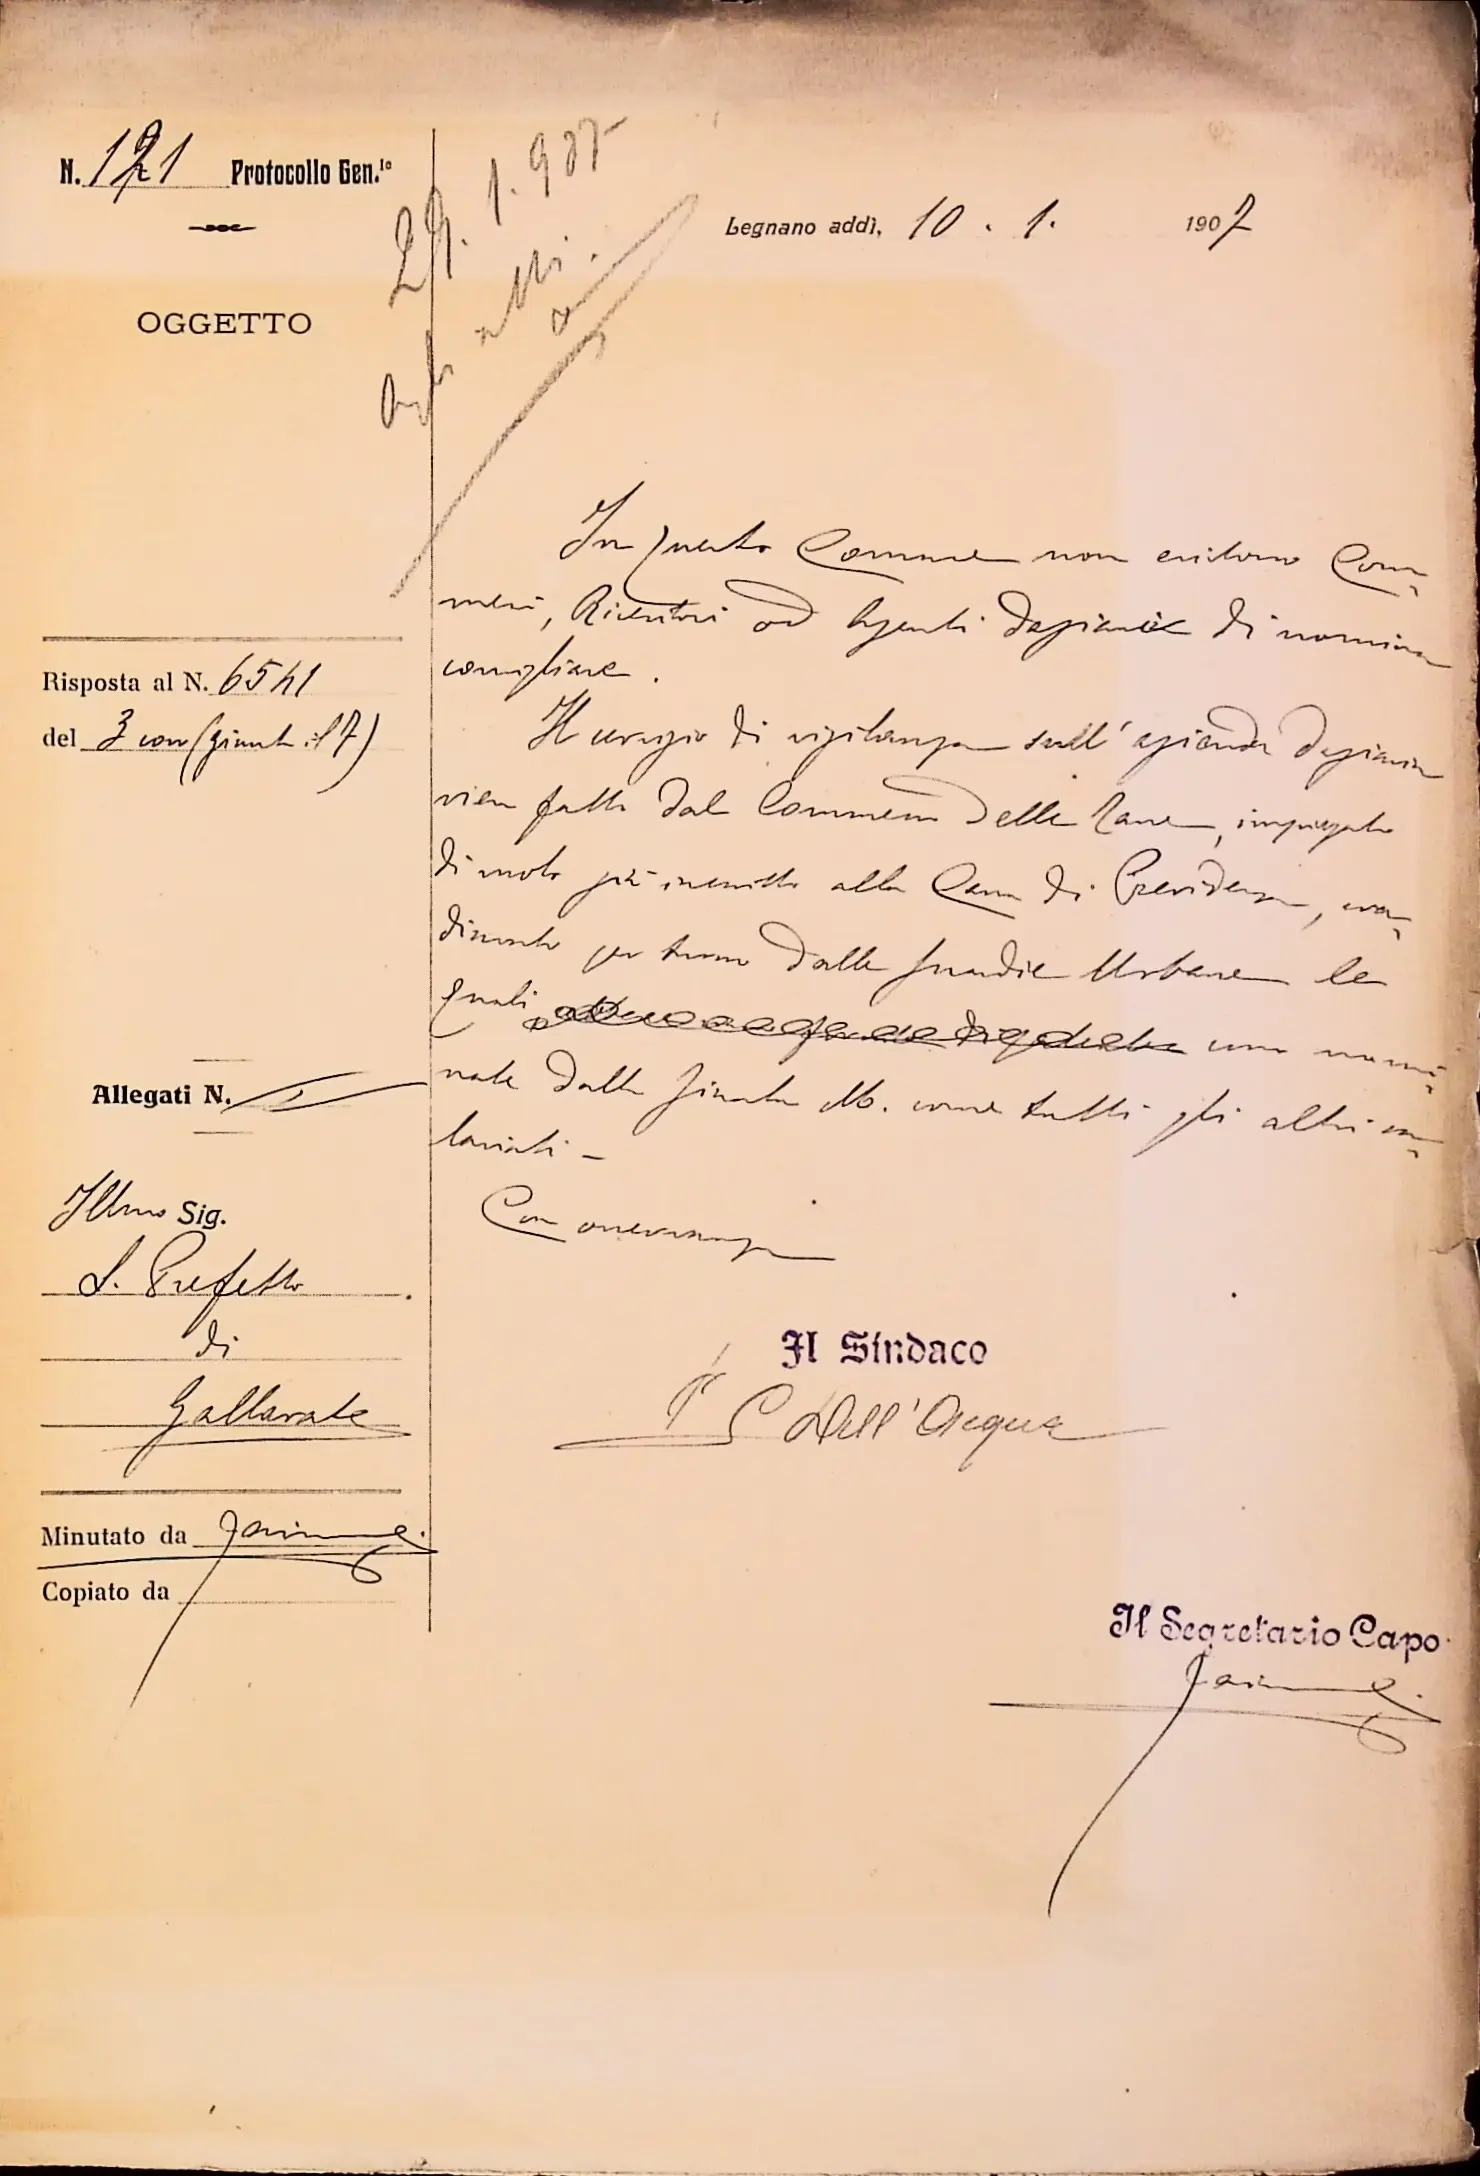 N. 121 Protocollo Gen.le
29. 1. 907
Legnano addì, 10 . 1. 1907
OGGETTO
In questo Comune non esistono Com=
messi, Ricevitori od Agenti daziari di nomina
consigliare.
Risposta al N. 6541
del 3 corr (giunta il 7)
Il servizio di vigilanza sull'azienda daziaria
vien fatto dal Commesso delle Tasse, impiegato
di ruolo già inscritto alla Cassa di Previdenza, coa=
diuvato per turno dalle guardie Urbane le
quali sono nomi=
nate dalla Giunta M. come tutti gli altri sa=
lariati -
Allegati N.
Con osservanza
Illmo Sig.
S. Prefetto
di
Gallarate
Il Sindaco
Dell'Acqua
Minutato da
Copiato da
Il Segretario Capo